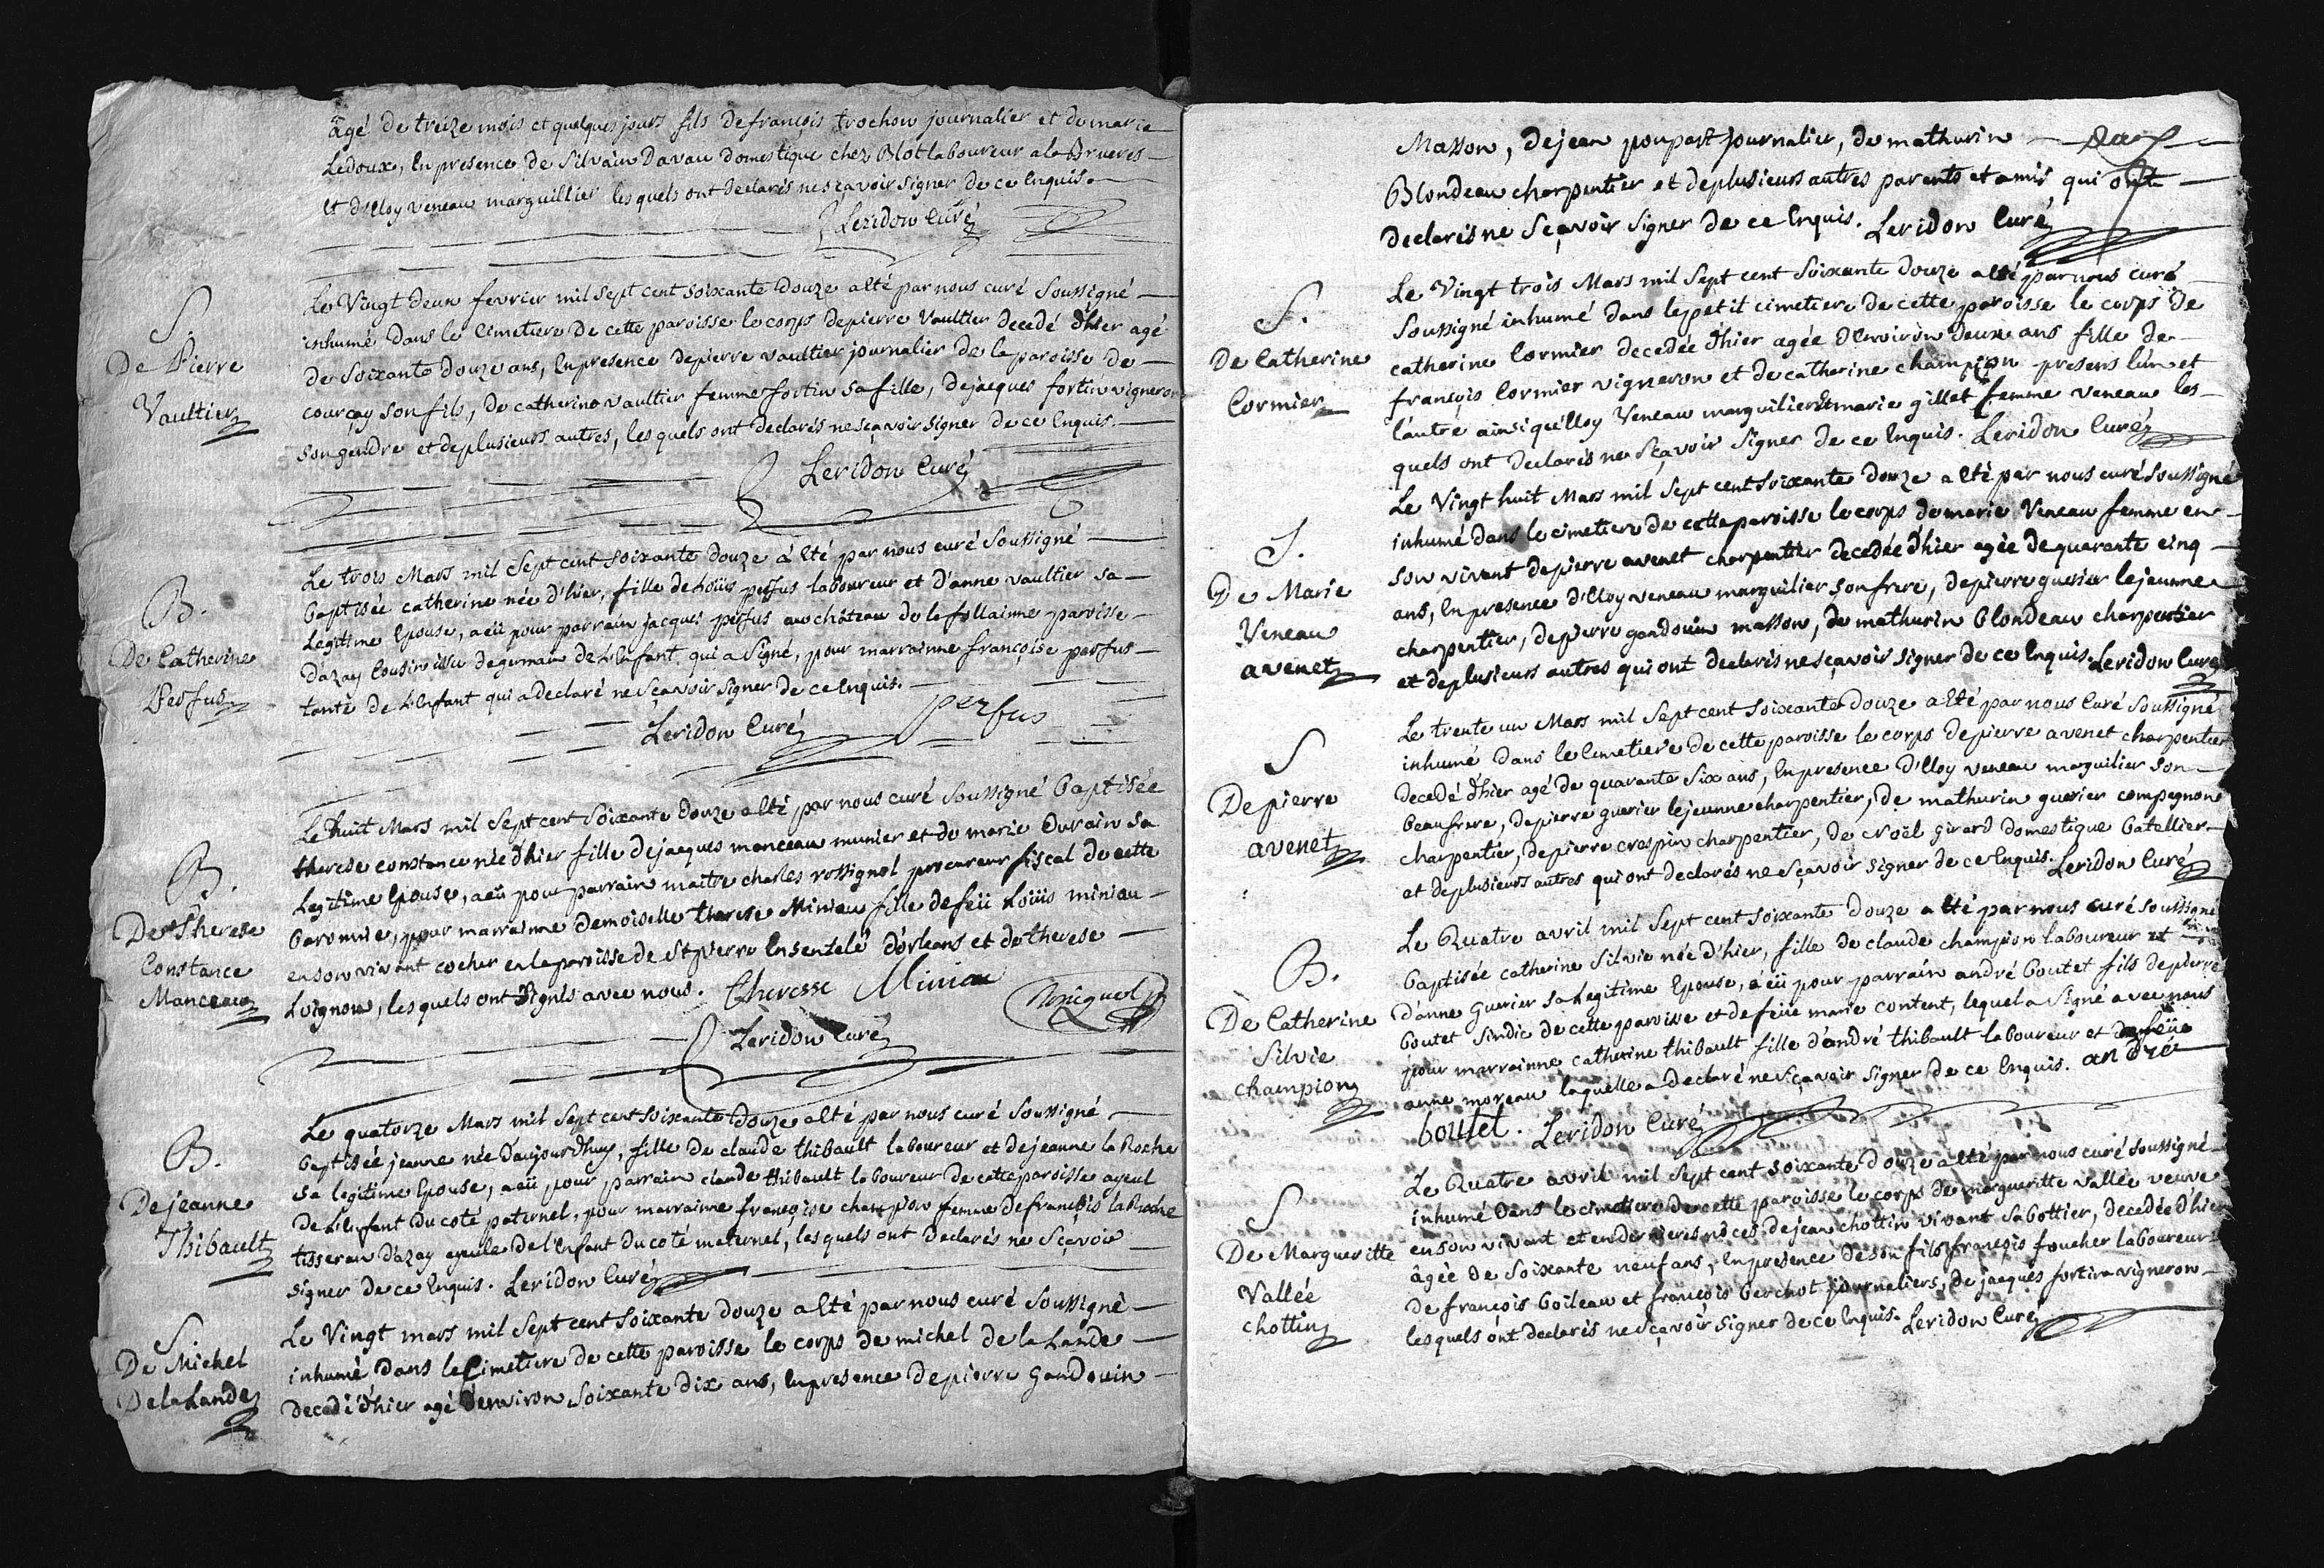 âgé de treize mois et quelques jours fils de françois trochon journalier et de marie
Ledoux, En presence de Silvain Davau domestique chez Blot laboureur a la Brueres
et d'Eloy veneau marguillier lesquels ont declarés ne sçavoir signer de ce Enquis.
Leridon Curé
S.
De Pierre
Vaultier
Le Vingt deux fevrier mil sept cent soixante douze a Eté par nous curé soussigné
inhumé dans le Cimetiere de cette paroisse le corps de pierre Vaultier decedé d'hier agé
de soixante douze ans, En presence de pierre vaultier journalier de la paroisse de
courçay son fils, de catherine vaultier femme fortin sa fille, de jacques fortin vigneron
son gendre et de plusieurs autres, lesquels ont declarés ne sçavoir signer de ce Enquis.
Leridon Curé
B.
De Catherine
Perfus
Le trois Mars mil Sept cent soixante douze à Eté par nous curé Soussigné
baptisée catherine née d'hier, fille de Loüis perfus laboureur et d'anne vaultier sa
Legitime Epouse, a eü pour parrain jacques perfus au château de la follainne paroisse
d'azay Cousin issu de germain de L'Enfant qui a signé, pour marrainne françoise perfus
tante de L'Enfant qui a declaré ne sçavoir signer de ce Enquis.
Leridon Curé perfus
B.
De Therese
Constance
Manceau
Le huit Mars mil sept cent soixante douze a Eté par nous curé soussigné baptisée
therese constance née d'hier fille de jacques manceau munier et de marie Ourain sa
Legitime Epouse, a eü pour parrain maitre charles rossignol procureur fiscal de cette
baronnie, pour marrainne demoiselle therese Miniau fille de feü Loüis miniau
en son vivant cocher en la paroisse de St pierre Ensentelé d'orleans et de therese
Loignon, lesquels ont signés avec nous. Theresse Miniau
Leridon Curé
B.
De jeanne
Thibault
Le quatorze Mars mil sept cent soixante douze a Eté par nous curé soussigné
baptisée jeanne née d'aujourdhuy, fille de claude thibault laboureur et de jeanne la Roche
sa legitime Epouse, a eü pour parrain claude thibault laboureur de cette paroisse ayeul
de L'Enfant du coté paternel, pour marrainne françoise champion femme de françois la Roche
tisseran d'azay ayeule de l'Enfant du coté maternel, lesquels ont declarés ne sçavoir
signer de ce Enquis. Leridon Curé
S.
De Michel
De la Lande
Le Vingt mars mil Sept cent soixante douze a Eté par nous curé soussigné
inhumé dans le Cimetiere de cette paroisse le corps de michel de la Lande
decedé d'hier agé d'environ soixante dix ans, En presence de pierre Gandouin
Masson, de jean poupart journalier, de mathurin
Blondeau charpentier et de plusieurs autres parents et amis qui ont
declarés ne Sçavoir signer de ce Enquis. Leridon Curé
S.
De Catherine
Cormier
Le Vingt trois Mars mil Sept cent soixante douze a Eté par nous curé
soussigné inhumé dans le petit cimetiere de cette paroisse le corps de
catherine Cormier decedée d'hier agée d'Environ deux ans fille de
françois Cormier vigneron et de catherine champion presens l'un et
l'autre ainsi qu'Elloy Veneau marguilier Et marie gillet femme veneau les
quels ont declarés ne sçavoir signer de ce Enquis. Leridon Curé
S.
De Marie
Veneau
avenet
Le Vingt huit Mars mil Sept cent soixante douze a Eté par nous curé soussigné
inhumé dans le cimetiere de cette paroisse le corps de marie Veneau femme en
son vivant de pierre avenet charpentier decedée d'hier agée de quarante cinq
ans, En presence d'Eloy veneau marguilier son frere, de pierre guerier le jeunne
charpentier, de pierre gandouin masson, de mathurin blondeau charpentier
et de plusieurs autres qui ont declarés ne sçavoir signer de ce Enquis. Leridon Curé
S
De pierre
avenet
Le trente un Mars mil sept cent soixante douze a Eté par nous Curé soussigné
inhumé dans le Cimetiere de cette paroisse le corps de pierre avenet charpentier
decedé d'hier agé de quarante six ans, En presence d'Eloy veneau marguilier son
beaufrere, de pierre guerier le jeunne charpentier, de mathurin guerier compagnon
charpentier, de pierre crespin charpentier, de Noël Girard domestique batellier
et de plusieurs autres qui ont declarés ne sçavoir signer de ce Enquis. Leridon Curé
B.
De Catherine
Silvie
champion
Le Quatre avril mil Sept cent soixante douze a Eté par nous curé soussigné
baptisée catherine silvie née d'hier, fille de claude champion laboureur et
d'anne Guerier sa Legitime Epouse, a eü pour parrain andré boutet fils de pierre
boutet sindic de cette paroisse et de feüe marie content, lequel a signé avec nous
pour marrainne catherine thibault fille d'andré thibault laboureur et de feüe
anne moreau laquelle a declaré ne sçavoir signer de ce Enquis. andré
boutet. Leridon Curé
S
De Margueritte
Vallée
chottin
Le Quatre avril mil Sept cent soixante douze a Eté par nous curé soussigné
inhumé dans le cimetiere de cette paroisse le corps de margueritte vallée veuve
en son vivant et en dernieres nôces de jean chottin vivant sabottier, decedée d'hier
âgée de soixante neuf ans, En presence de son fils françois foucher laboureur
de françois boileau et françois berchot journaliers, de jacques fortin vigneron
lesquels ont declarés ne sçavoir signer de ce Enquis. Leridon Curé